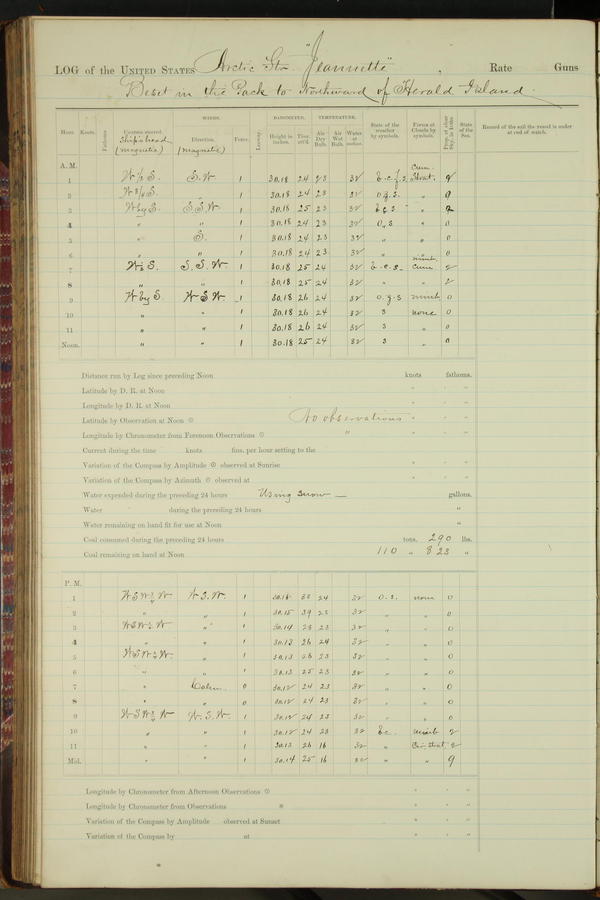 LOG of the UNITED STATES Arctic Str "Jeannette", Rate Guns
Beset in the Pack to Northward of Herald Island.
WINDS. BAROMETER. TEMPERATURE.
Hour. Knots. Fathoms. Courses steered. Direction. Force. Leeway. Height in inches. Ther. att'd. Air Dry Bulb. Air Wet Bulb. Water at surface. State of the weather by symbols. Forms of Clouds by symbols. Prop. of clear Sky, in 10ths. State of the Sea. Record of the sail the vessel is under at end of watch.
Ship's head (magnetic) (magnetic)
A. M.
1 S.W. 1 30.18 24 23 32 Cum. Strat.
2 1 30.18 24 23 o.g.s. "
3 W by S. S.S.W. 1 30.18 25 23 32 "
4 " " 1 30.18 24 23 32 O.s " 0
5 " S. 1 30.18 24 23 32 " " 0
6 " " 1 30.18 24 23 32 " " 0
7 S.S.W. 1 30.18 25 24 32 b.c.s. Cum 2
8 " " 1 30.18 25 24 32 " " 2
9 W by S WSW 1 30.18 26 24 32 o.g.s nimb 0
10 " " 1 30.18 26 24 32 s none 0
11 " " 1 30.18 26 24 32 s " 0
Noon. " " 1 30.18 25 24 32 s " 0
Distance run by Log since preceding Noon knots fathoms.
Latitude by D. R. at Noon ° ' "
Longitude by D. R. at Noon ° ' "
Latitude by Observation at Noon ☉ No observations ° ' "
Longitude by Chronometer from Forenoon Observations ☉ " ° ' "
Current during the time knots fms. per hour setting to the
Variation of the Compass by Amplitude ☉ observed at Sunrise ° ' "
Variation of the Compass by Azimuth ☉ observed at ° ' "
Water expended during the preceding 24 hours Using snow — gallons.
Water during the preceding 24 hours "
Water remaining on hand fit for use at Noon "
Coal consumed during the preceding 24 hours tons, 290 lbs.
Coal remaining on hand at Noon 110 " 823 "
P. M.
1 WSW½W W.S.W. 1 30.16 24 32 O.s. none 0
2 " " 1 30.15 29 23 32 " " 0
3 WSW½W " 1 30.14 28 23 32 " " 0
4 " " 1 30.13 26 24 32 " " 0
5 WSW½W. " 1 30.13 26 23 32 " " 0
6 " " 1 30.13 25 23 32 " " 0
7 " Calm. 0 30.12 24 23 32 " " 0
8 " " 0 30.12 24 23 32 " " 0
9 WSW½W W.S.W. 1 30.12 24 23 32 " " 0
10 " " 1 30.12 24 23 32 bc. nimb 2
11 " " 1 30.13 26 16 32 " Cir. Strat 2
Mid. " " 1 30.14 25 16 32 " " 9
Longitude by Chronometer from Afternoon Observations ☉ ° ' "
Longitude by Chronometer from Observations * ° ' "
Variation of the Compass by Amplitude observed at Sunset ° ' "
Variation of the Compass by at ° ' "